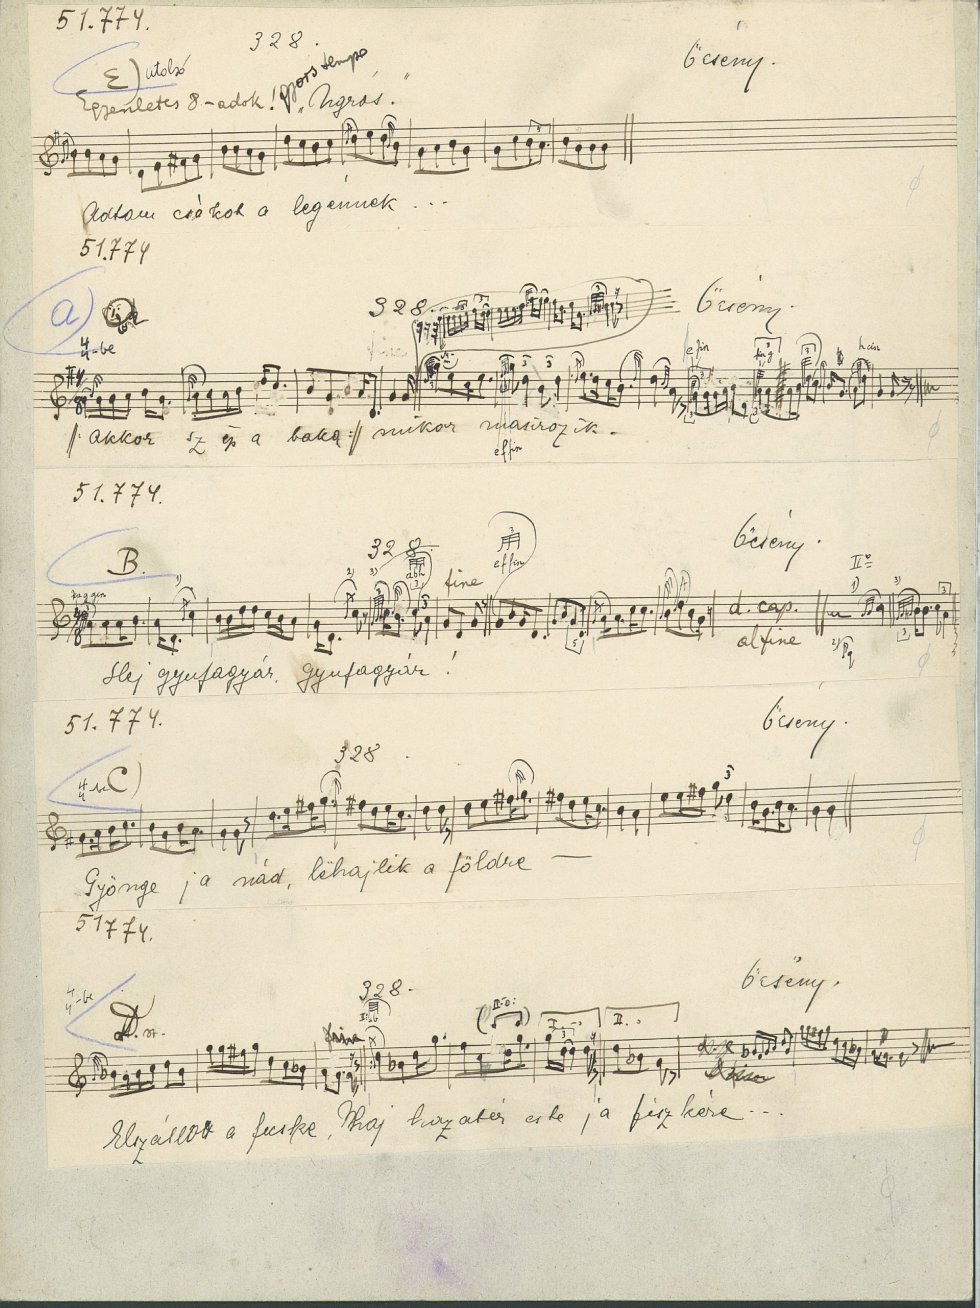 51.774.
328.
Őcsény.
E) utolsó
Egyenletes 8-adok! gyors tempo
"Ugrós."
3
Adtam csókot a legénnek ...
51.774
a)
328.
Őcsény.
4/4-be
efin
han
||: akkor sz ép a baka :|| mikor masirozik.
effin
51.774.
328.
Őcsény.
B.
fine
effin
II°=
d. cap.
al fine
Hej gyufagyár, gyufagyár!
51.774.
Őcsény.
328
4/4-be C)
3
Gyönge ja nád, lehajlik a földre —
51774.
Őcsény.
4/4-be
328.
D.
II-o:
I.
II.
Elszállott a fecske, Maj hazatér este ja fészkére ...